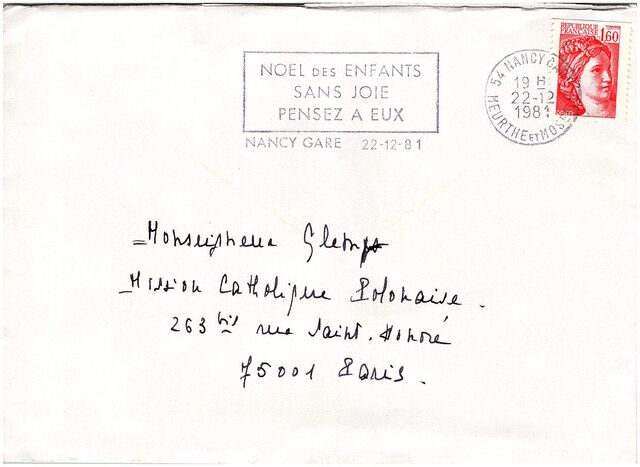 REPUBLIQUE
FRANÇAISE 1,60
NOEL DES ENFANTS
SANS JOIE
PENSEZ A EUX
NANCY GARE 22-12-81
54 NANCY GARE
19 H
22-12
1981
MEURTHE ET MOSELLE
Monseigneur Glemp
Mission Catholique Polonaise.
263 bis rue Saint-Honoré
75001 Paris.